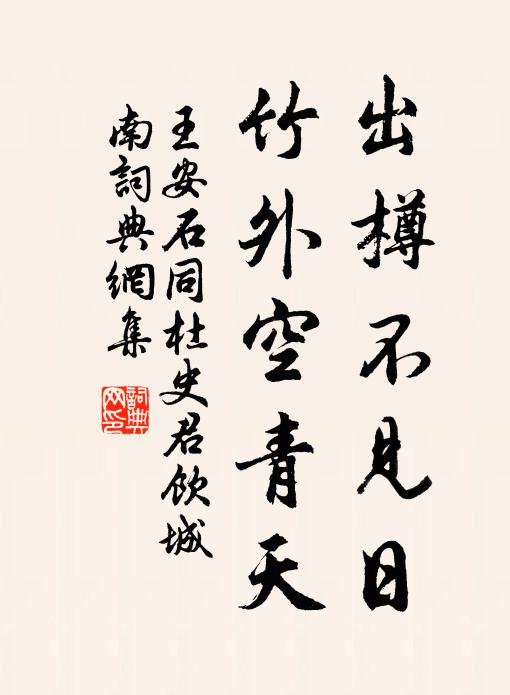 出樽不見日
竹外空青天
王安石同杜史君飲城
南詞典網集
詞典
网印